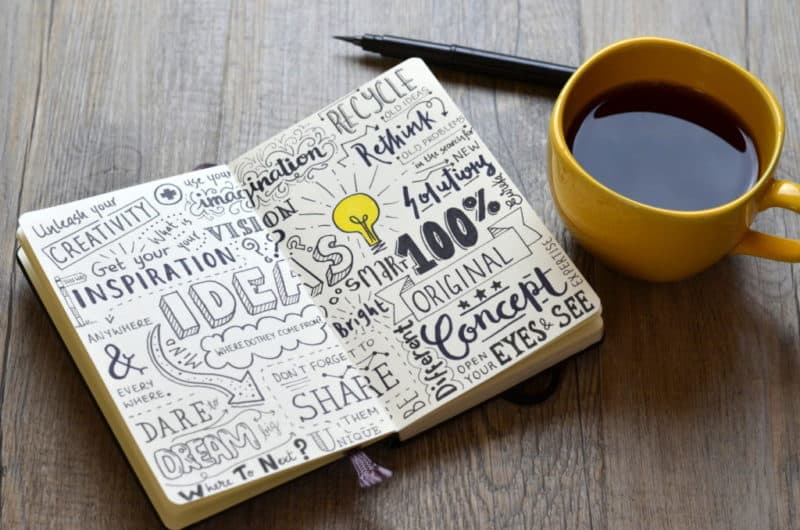 Unleash your
CREATIVITY
use your
imagination
What is
your
VISION
??
Get your
INSPIRATION
ANYWHERE
&
EVERY
WHERE.
IDEAS
MIND
WHERE DO THEY COME FROM?
DARE to
DREAM big
Where To Next?
DON'T FORGET
TO
SHARE
THEM
BE
UNIQUE
RECYCLE
OLD IDEAS
Rethink
OLD PROBLEMS
in the search for
NEW
Solutions
SMART
100%
ORIGINAL
Bright
Different
Concept
EXPERTISE
OPEN
YOUR
EYES & SEE